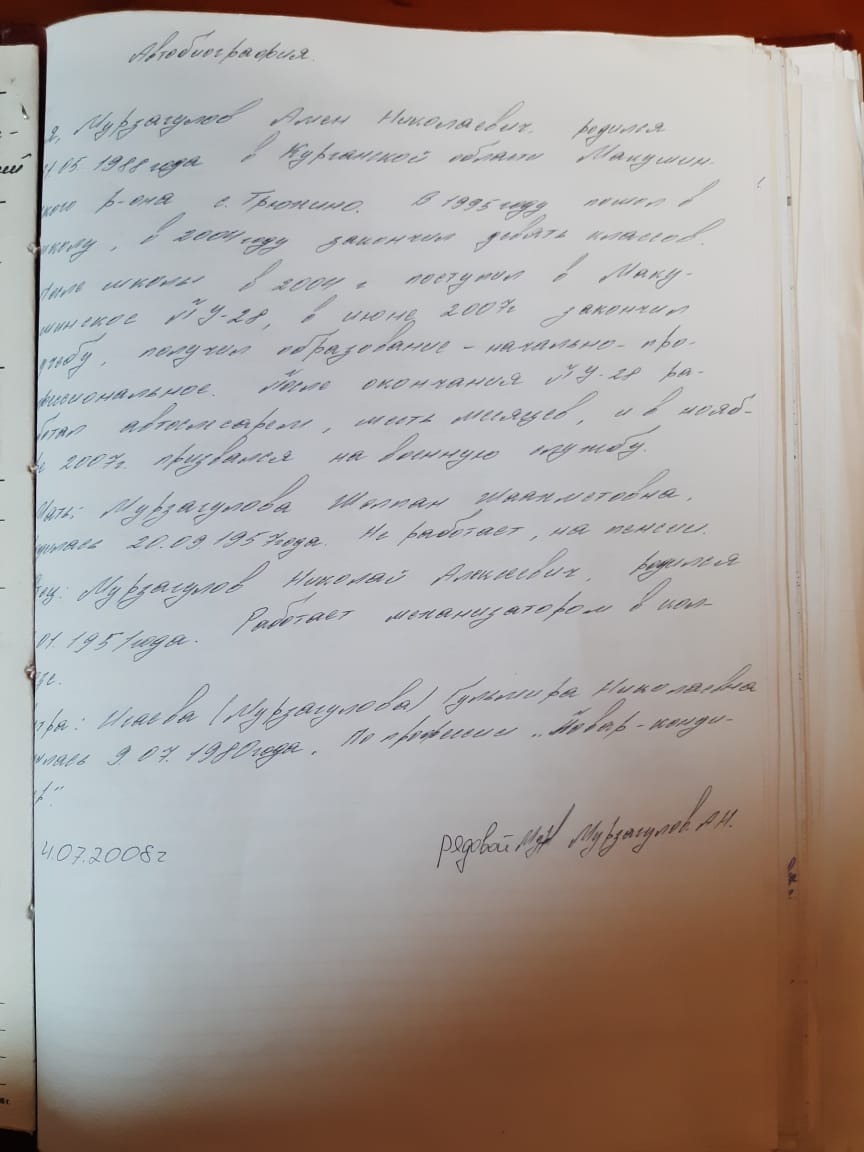 Автобиография.
Я, Мурзагулов Амен Николаевич. родился
4.05.1988 года в Курганской области Макушин-
кого р-она с. Трюхино. В 1995 году пошол в
школу, в 2004 году закончил девять классов.
После школы в 2004 г поступил в Маку-
шинское ПУ-28, в июне 2007г закончил
учебу, получил образование - начально-про-
фессиональное. После окончания ПУ-28 ра-
ботал автослесарем, шесть месяцев, и в нояб-
ре 2007г. призвался на военную службу.
Мать: Мурзагулова Шолпан
родилась 20.09.1957года. Не работает, на пенсии.
Отец: Мурзагулов Николай родился
01.1951года. Работает механизатором в кол-
зе.
стра: Исаева (Мурзагулова) Гульмира Николаевна
илась 9.07.1980года. По професии „Повар-конди-
р".
4.07.2008г рядовой Мурзагулов А Н.